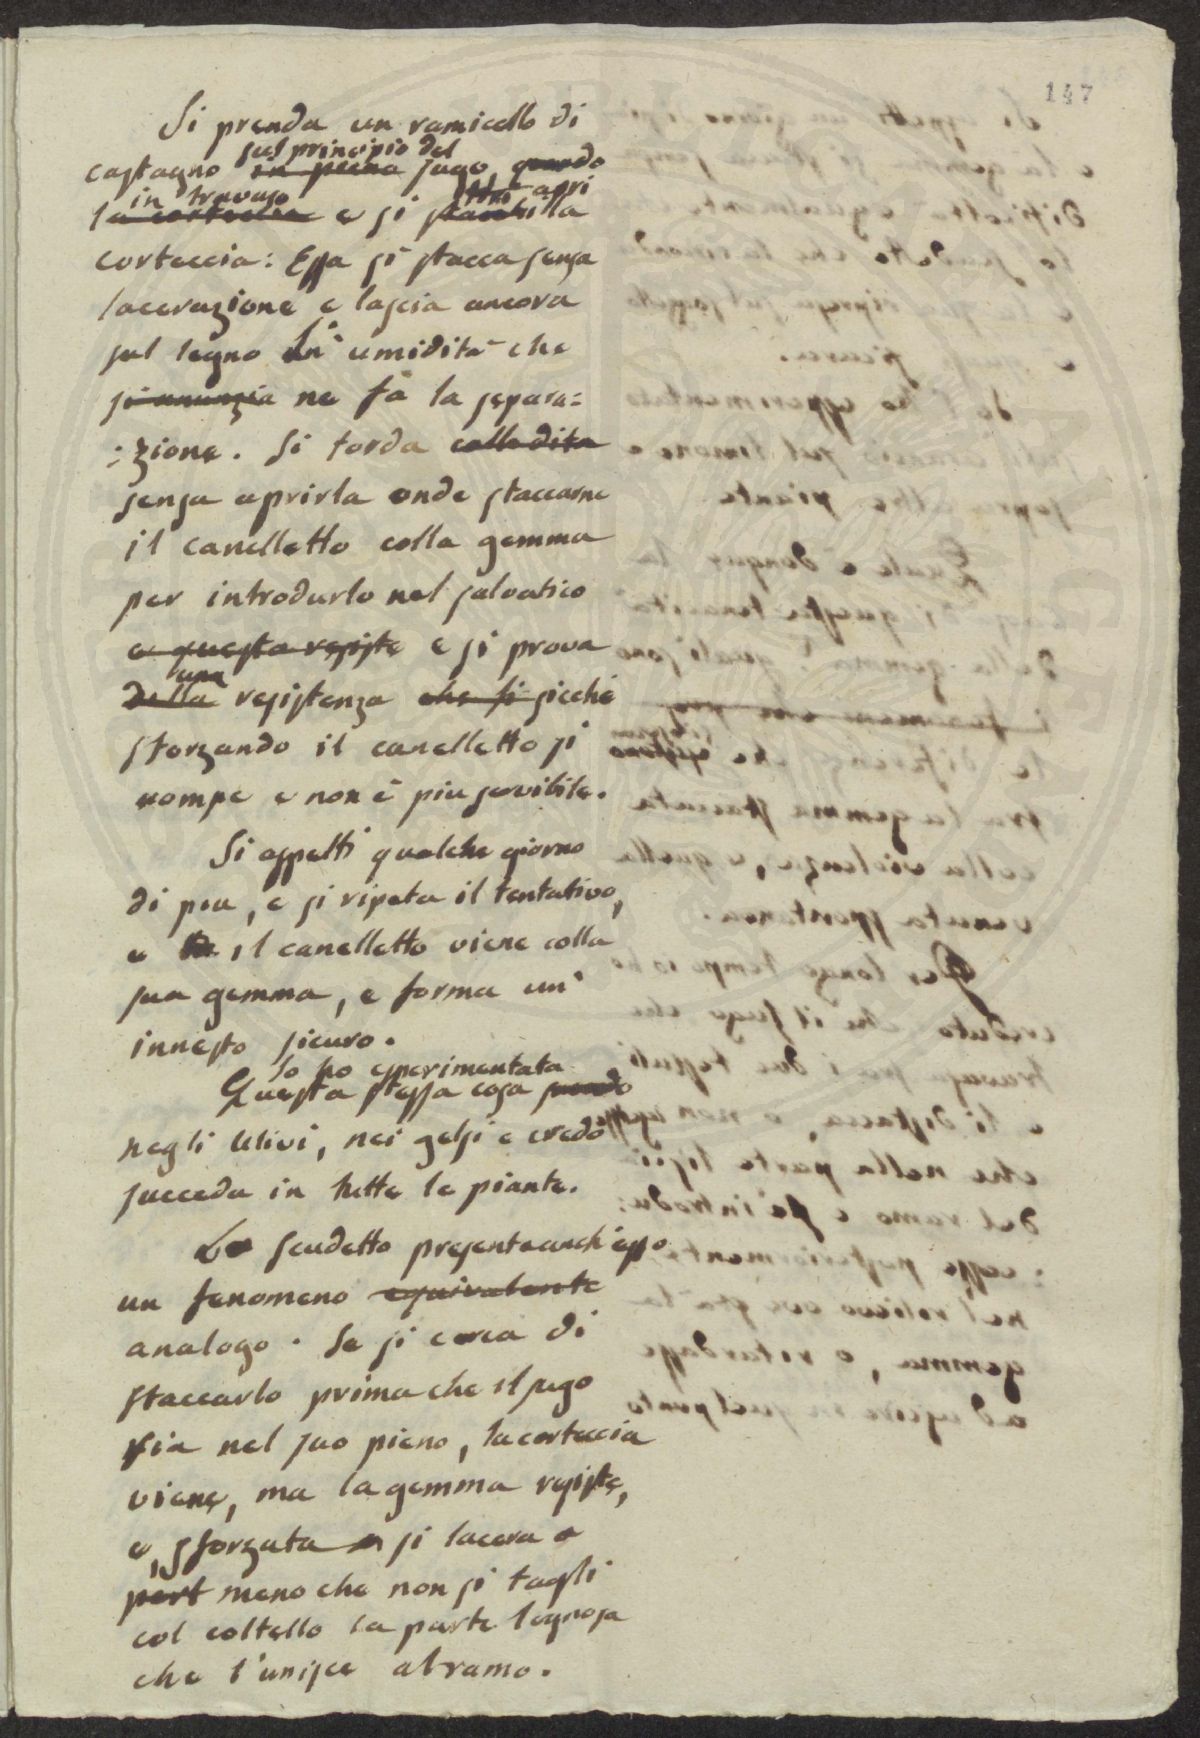 147
Si prenda un ramicello di
sul principio del
castagno in pieno sugo, quando
in travaso apri
la corteccia e si stacchi la
corteccia: Essa si stacca senza
lacerazione e lascia ancora
sul legno un' umidità che
si anunzia ne fà la separa=
=zione. Si torda colle dita
senza aprirla onde staccarne
il canelletto colla gemma
per introdurlo nel salvatico
e questa resiste e si prova
una
della resistenza che si sicché
sforzando il canelletto si
rompe e non è piu servibile.
Si aspetti qualche giorno
di piu, e si ripeta il tentativo,
e il canelletto viene colla
sua gemma, e forma un'
innesto sicuro.
Io ho esperimentata
Questa stessa cosa
negli Ulivi, nei gelsi e credo
succeda in tutte le piante.
Lo scudetto presenta anch'esso
un fenomeno equivalente
analogo. Se si cerca di
staccarlo prima che il sugo
sia nel suo pieno, la corteccia
viene, ma la gemma resiste,
e, sforzata si lacera a
pert meno che non si tagli
col coltello la parte legnosa
che l'unisce al ramo.